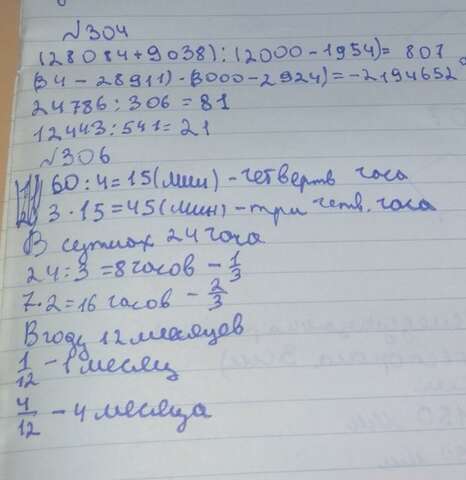 №304
(28084+9038):(2000-1954)= 807
34 - 28911)·(3000-2924)=-2194652
24786:306=81
12443:541=21
№306
60:4=15(мин)-четверть часа
3·15=45(мин)-три четв. часа
В сутках 24 часа
24:3=8 часов - 1/3
7·2=16 часов - 2/3
В году 12 месяцев
1/12 - 1 месяц
4/12 - 4 месяца